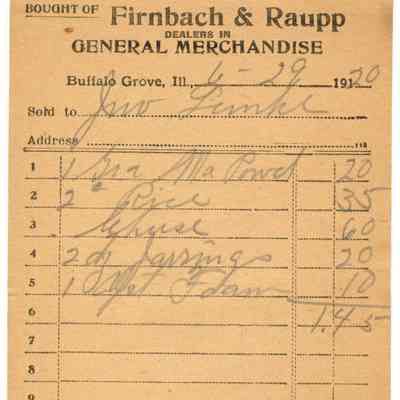 BOUGHT OF Firnbach & Raupp
DEALERS IN
GENERAL MERCHANDISE
Buffalo Grove, Ill., 6-29 1920
Sold to Jno
Address
1 1 20
2 2 Rice 35
3 Cheese 60
4 2 20
5 1 Foam 10
6 1.45
7
8
9